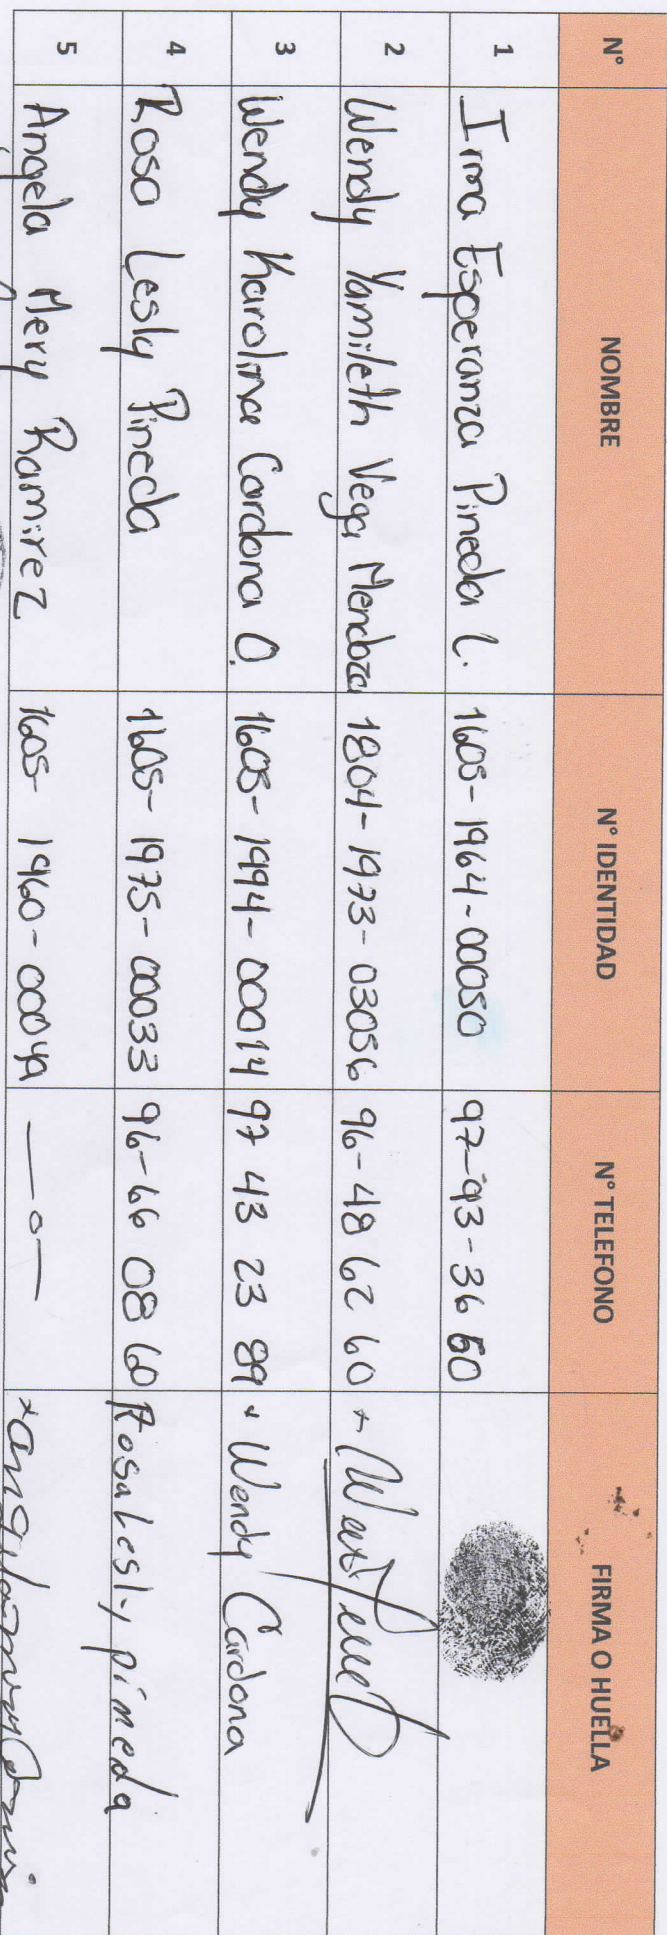 N° NOMBRE N° IDENTIDAD N° TELEFONO FIRMA O HUELLA
1 Irma Esperanza Pineda L. 1605-1964-00050 97-93-36 60
2 Wendy Yamileth Vega Mendoza 1804-1973-03056 96-48 62 60 +
3 Wendy Karolina Cardona O. 1605-1994-00014 97 43 23 89 + Wendy Cardona
4 Rosa Lesly Pineda 1605-1975-00033 96-66 08 60 Rosa Lesly pineda
5 Angela Mery Ramirez 1605- 1960- —o— +